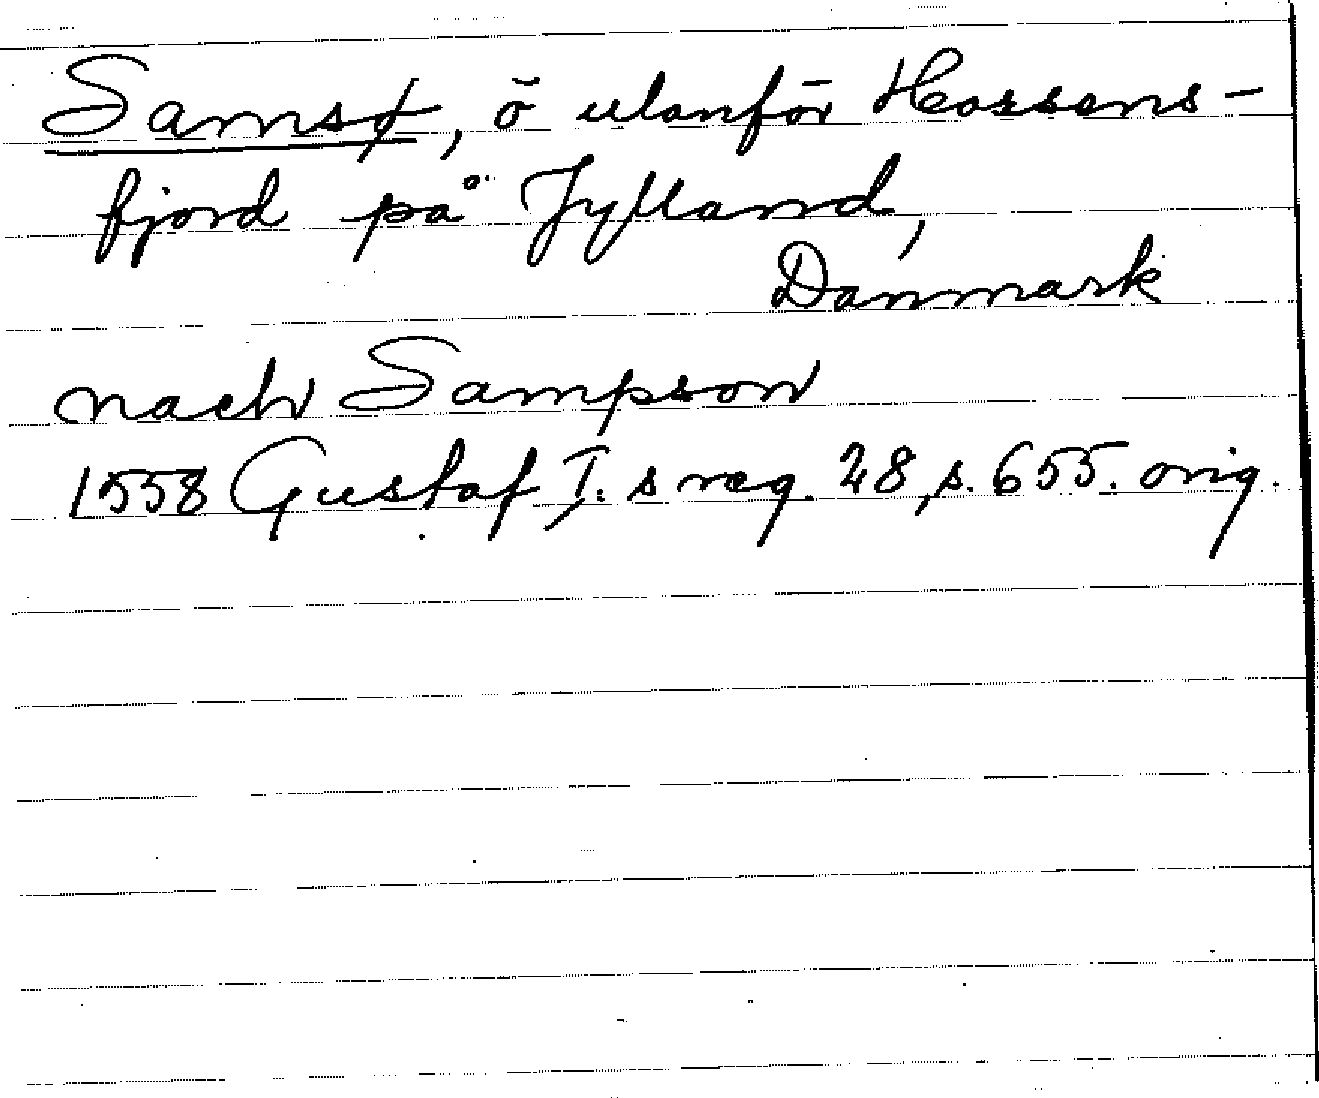 Samsø, ö utanför Horsens-
fjord på Jylland,
Danmark
nach Sampson
1558 Gustaf I:s reg. 28, s. 655. orig.